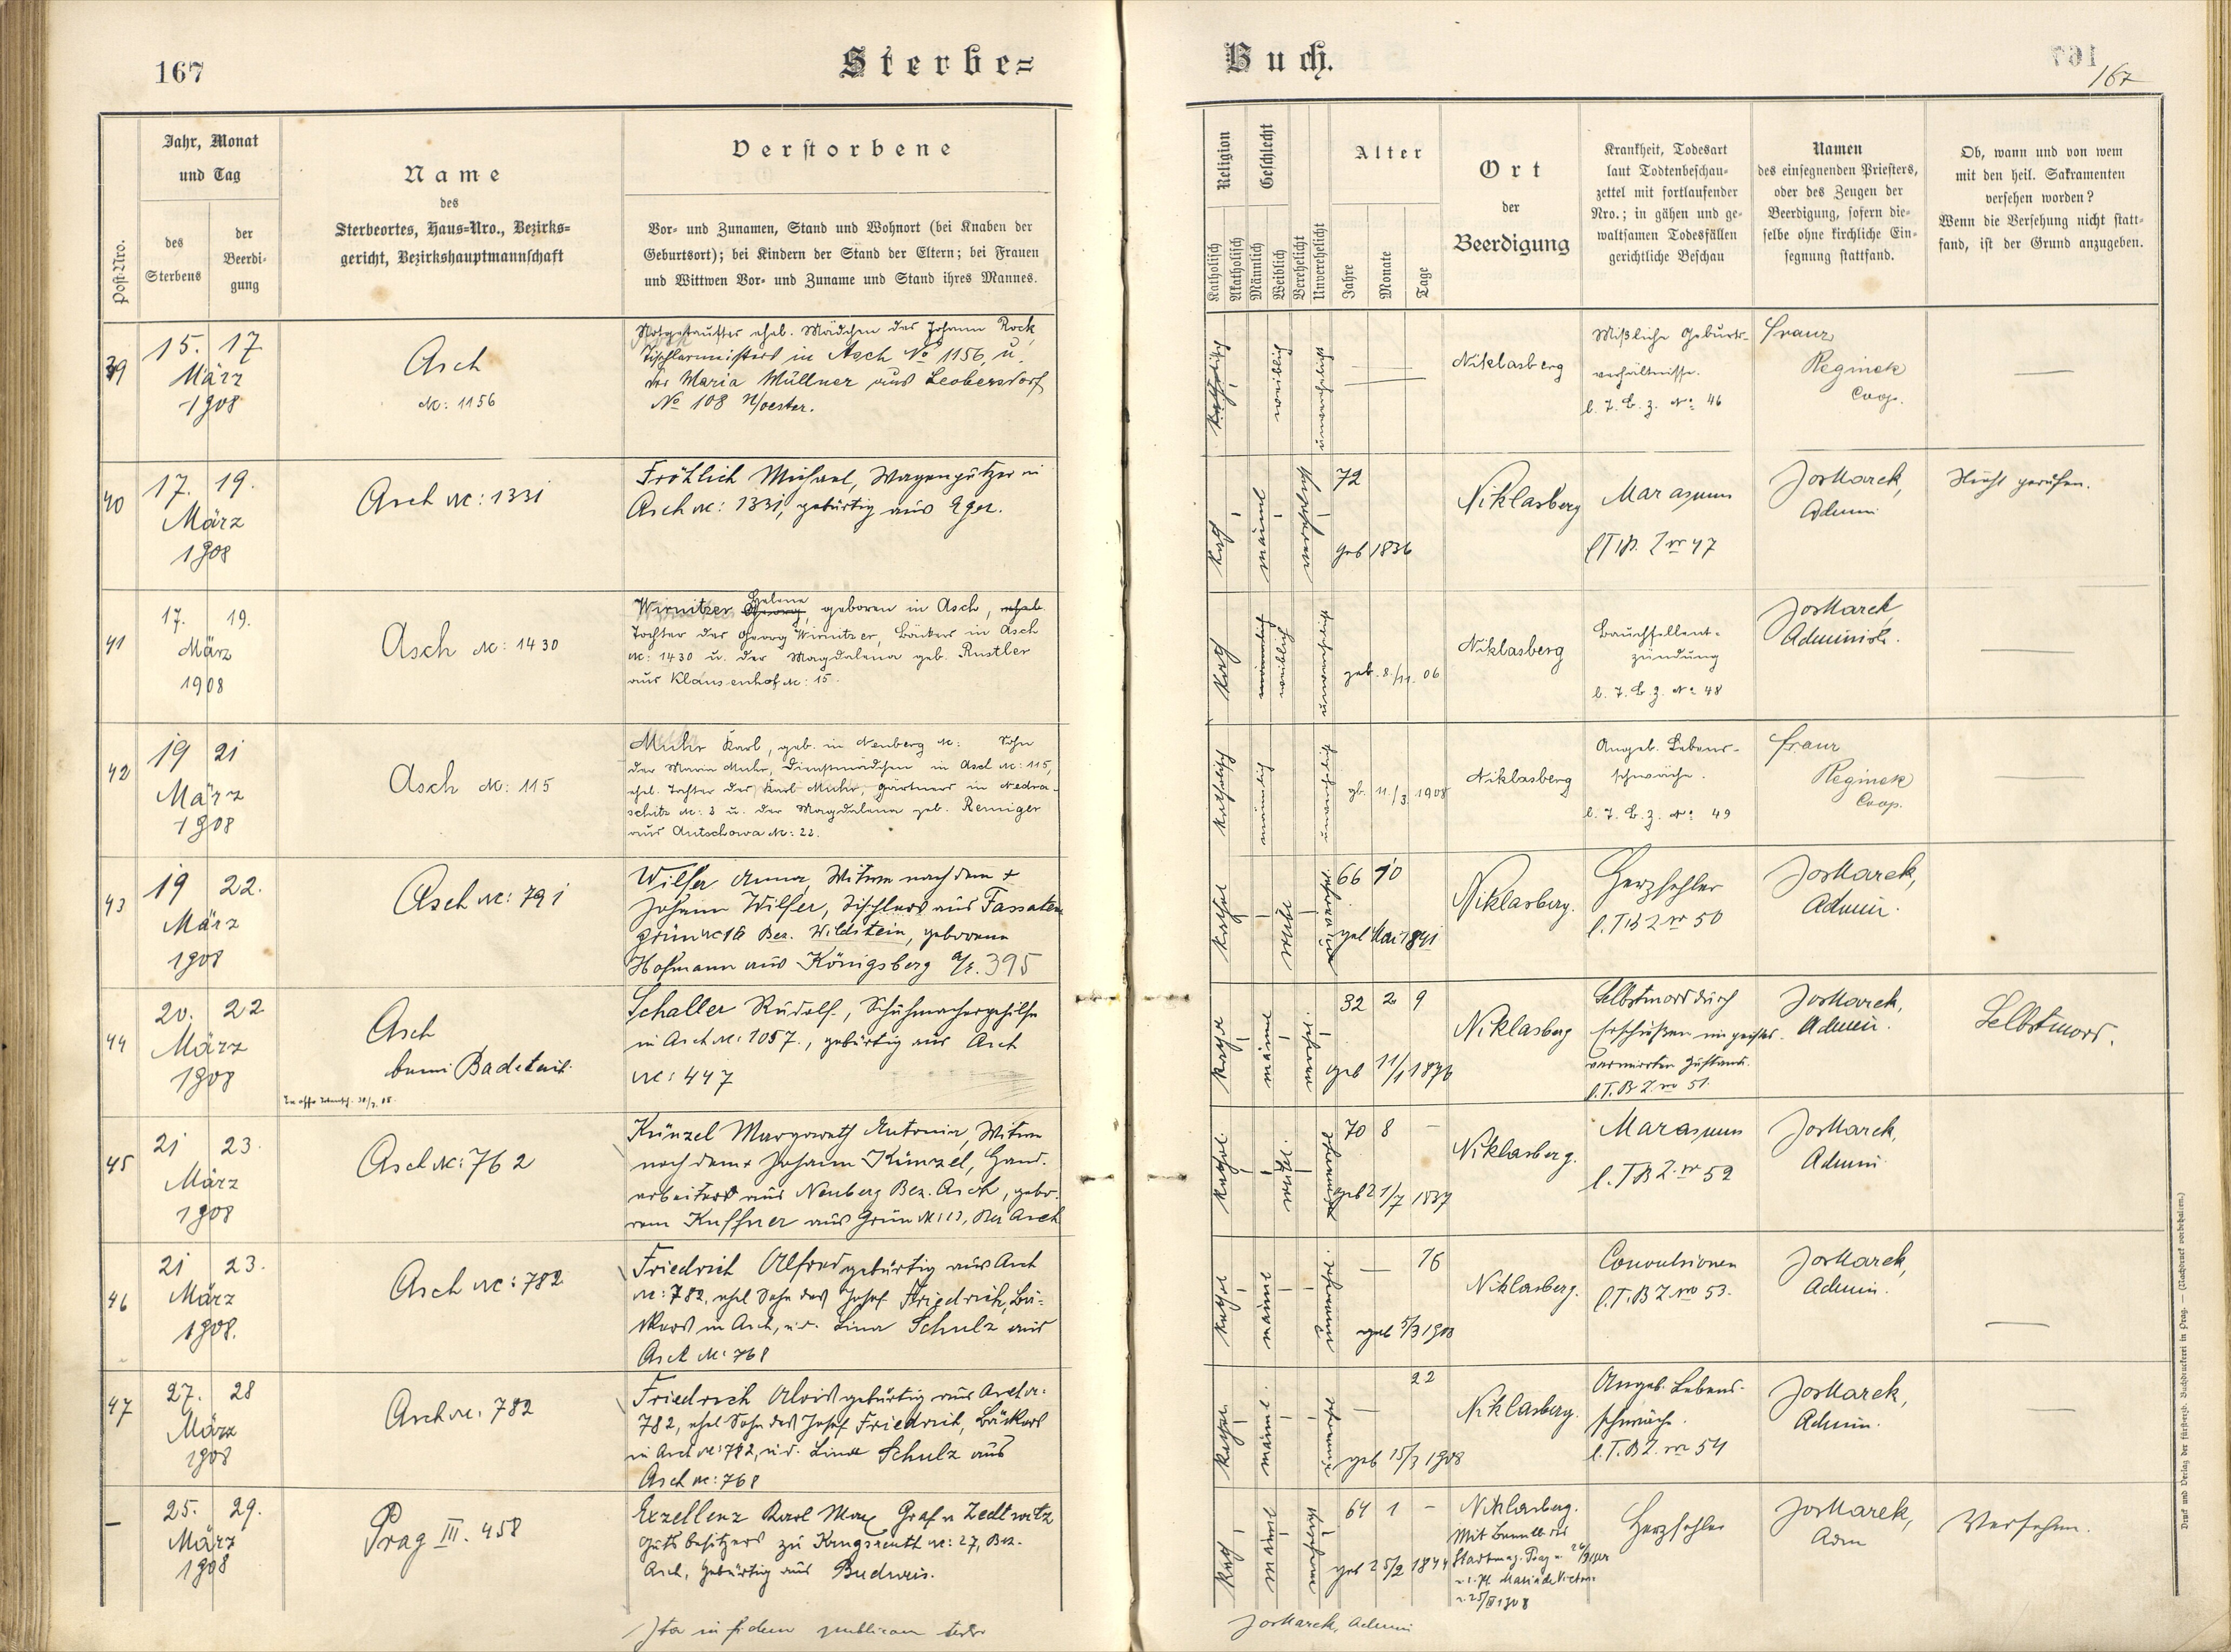 167
Sterbe=
Jahr, Monat
und Tag
Post-Nro.
des
Sterbens
der
Beerdi-
gung
Name
des
Sterbeortes, Haus-Nro., Bezirks-
gericht, Bezirkshauptmannschaft
Verstorbene
Vor- und Zunamen, Stand und Wohnort (bei Knaben der
Geburtsort); bei Kindern der Stand der Eltern; bei Frauen
und Wittwen Vor- und Zuname und Stand ihres Mannes.
39
15. 17.
März
1908
Asch
Nr: 1156
Notgetauftes ehel. Mädchen des Johann Rock,
Tischlermeisters in Asch No 1156, u.
der Maria Müllner aus Leobersdorf
No 108 N/oester.
40
17. 19.
März
1908
Asch Nr: 1331
Fröhlich Michael, Wagenputzer in
Asch Nr: 1331, gebürtig aus Eger.
41
17. 19.
März
1908
Asch Nr: 1430
Helene
Wirnitzer Georg, geboren in Asch, ehel.
Tochter des Georg Wirnitzer, Bäckers in Asch
Nr: 1430 u. der Magdalena geb. Rustler
aus Klausenhof Nr: 15.
42
19 21
März
1908
Asch Nr: 115
Muhr Karl, geb. in Neuberg Nr: Sohn
der Maria Muhr, Dienstmädchen in Asch Nr: 115,
ehel. Tochter des Karl Muhr, Gärtners in Nedra-
schitz Nr: 3 u. der Magdalena geb. Reiniger
aus Autschowa Nr: 22.
43
19 22.
März
1908
Asch Nr: 791
Wilfer Anna, Witwe nach dem +
Johann Wilfer, Tischlers aus Fassaten
grün Nr 16 Bez. Wildstein, geborene
Hofmann aus Königsberg a/E. 395
44
20. 22
März
1908
Asch
beim Badeteich.
Schaller Rudolf, Schuhmachergehilfe
in Asch Nr: 1057., gebürtig aus Asch
Nr: 447
45
21 23.
März
1908
Asch Nr: 762
Künzel Margareth Antonia, Witwe
nach dem + Johann Künzel, Hand-
arbeiters aus Neuberg Bez. Asch, gebo-
rene Kuffner aus Grün Nr: 13, Bez Asch
46
21 23.
März
1908.
Asch Nr: 782
Friedrich Alfred gebürtig aus Asch
Nr: 782, ehel Sohn des Josef Friedrich, Bä-
ckers in Asch, u. d. Lina Schulz aus
Asch Nr: 768
47
27. 28
März
1908
Asch Nr. 782
Friedrich Alois gebürtig aus Asch Nr:
782, ehel Sohn des Josef Friedrich, Bäckers
in Asch Nr: 782, u. d. Lina Schulz aus
Asch Nr: 768
25. 29.
März
1908
Prag III. 458
Exzellenz Karl Max Graf v Zedtwitz
Gutsbesitzers zu Krugsreuth Nr: 27, Bez.
Asch, gebürtig aus Budweis.
Ita in fidem publicam
Buch.
167
Religion
Geschlecht
Alter
Katholisch
Akatholisch
Männlich
Weiblich
Verehelicht
Unverehelicht
Jahre
Monate
Tage
Ort
der
Beerdigung
Krankheit, Todesart
laut Todtenbeschau-
zettel mit fortlaufender
Nro.; in gähen und ge-
waltsamen Todesfällen
gerichtliche Beschau
Namen
des einsegnenden Priesters,
oder des Zeugen der
Beerdigung, sofern die-
selbe ohne kirchliche Ein-
segnung stattfand.
Ob, wann und von wem
mit den heil. Sakramenten
versehen worden?
Wenn die Versehung nicht statt-
fand, ist der Grund anzugeben.
Katholisch weiblich
Niklasberg
Mißliche Geburts-
verhältnisse.
l. T. B. Z. No 46
Franz
Reginek
Coop.
Kath männl
72
geb 1836
Niklasberg
Marasmus
l T B. Z nr 47
Jos Marek,
Admin
Nicht gerufen.
Kath männlich weiblich
geb. 8./11. 06
Niklasberg
Bauchfellent-
zündung
l. T. B. Z. No 48
Jos Marek,
Administr.
Katholisch männlich
gb. 11./3. 1908
Niklasberg
Angeb. Lebens-
schwäche.
l. T. B. Z. No 49
Franz
Reginek
Coop.
66 10
geb Mai 1841
Niklasberg.
Herzfehler
l. T B Z nr 50
Jos Marek,
Admin.
männl
32 2 9
geb 11/1 1876
Niklasberg
Selbstmord durch
Erschießen im geistes-
verwirrten Zustand.
l. T. B Z nr 51.
Jos Marek,
Admin.
Selbstmord.
70 8 -
geb 21/7 1837
Niklasberg.
Marasmus
l. T B Z. nr 52
Jos Marek,
Admin.
männl
16
geb 5/3 1908
Niklasberg.
Convulsionen
l. T. B Z nr 53.
Jos Marek,
Admin.
männl.
22
geb 15/3 1908
Niklasberg.
Angeb. Lebens-
schwäche.
l. T. B Z. nr 54
Jos Marek,
Admin.
Kath männl
64 1 -
geb 25/2 1844
Niklasberg.
Mit Bewill. des
Stadtmag. Prag
Maria de Victoria
v. 25/III 1908
Herzfehler
Jos Marek,
Adm
Versehen.
Jos Marek, Admin
Druck und Verlag der fürsterzb. Buchdruckerei in Prag. — (Nachdruck vorbehalten.)